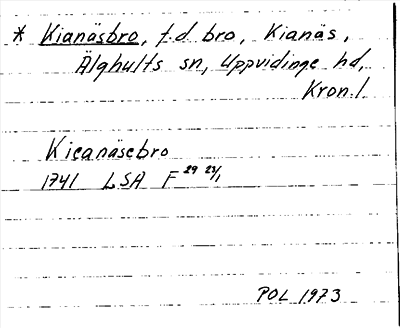 * Kianäsbro, f.d. bro, Kianäs,
Älghults sn, Uppvidinge hd,
Kron.l.
Kieanäsebro
1741 LSA F 29 23/1
POL 1973